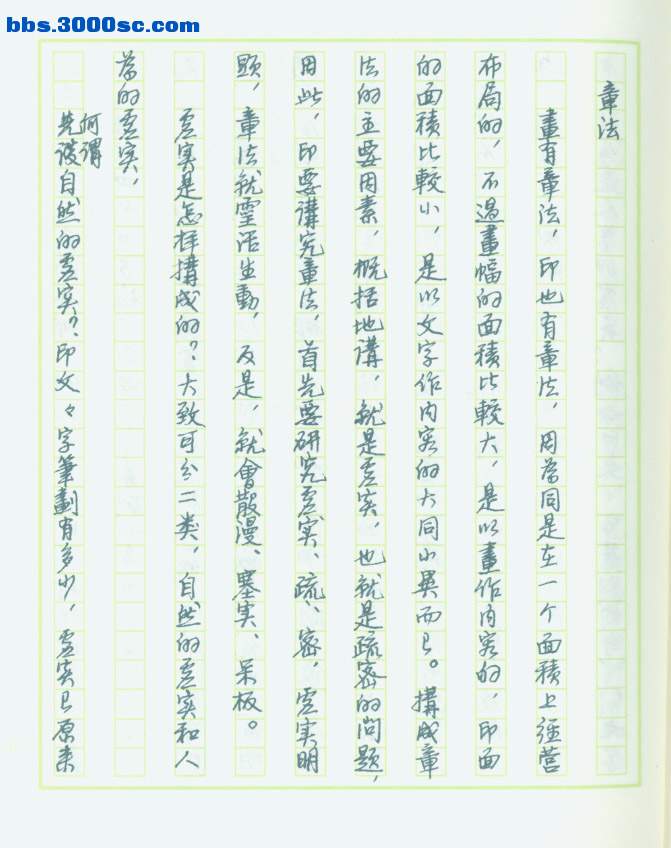 bbs.3000sc.com
章法
畫有章法，印也有章法，因為同是在一个面積上經营
布局的，不過畫幅的面積比較大，是以畫作内容的，印面
的面積比較小，是以文字作内容的大同小異而已。搆成章
法的主要因素，概括地講，就是虚实，也就是疏密的问题，
因此，印要講究章法，首先要研究虚实、疏、密，虚实明
顯，章法就靈活生動，反是，就會散漫、塞实、呆板。
虚实是怎样搆成的？大致可分二类，自然的虚实和人
為的虚实，
何謂
先谈自然的虚实？印文文字筆劃有多少，虚实已原来